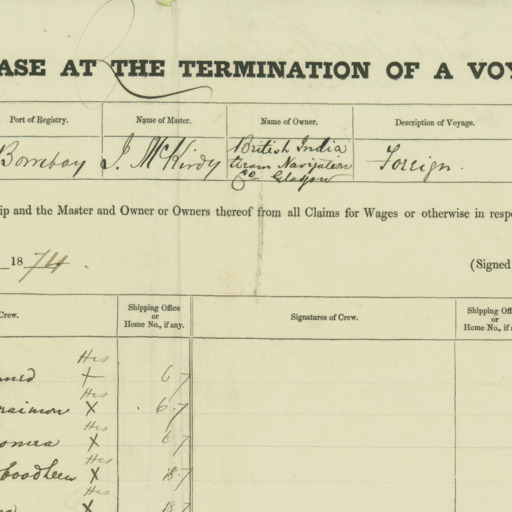 ASE AT THE TERMINATION OF A VOY
Port of Registry. Name of Master. Name of Owner. Description of Voyage.
Bombay J. McKirdy British India Steam Navigation Co Glasgow Foreign.
ip and the Master and Owner or Owners thereof from all Claims for Wages or otherwise in resp
18 74. (Signed
Crew. Shipping Office or Home No., if any. Signatures of Crew. Shipping Off or Home No., if
His
X 67
His
X 6.7
His
X 67
His
X 187
His
X 187